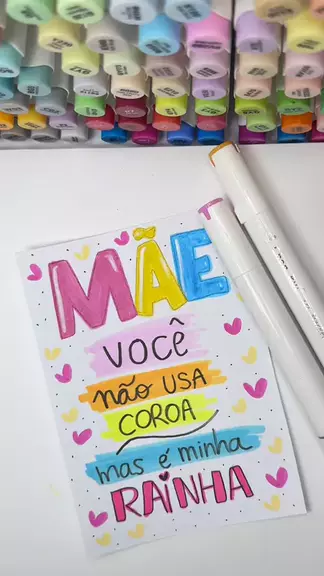 MÃE
VOCÊ
não USA
COROA
mas é minha
RAINHA